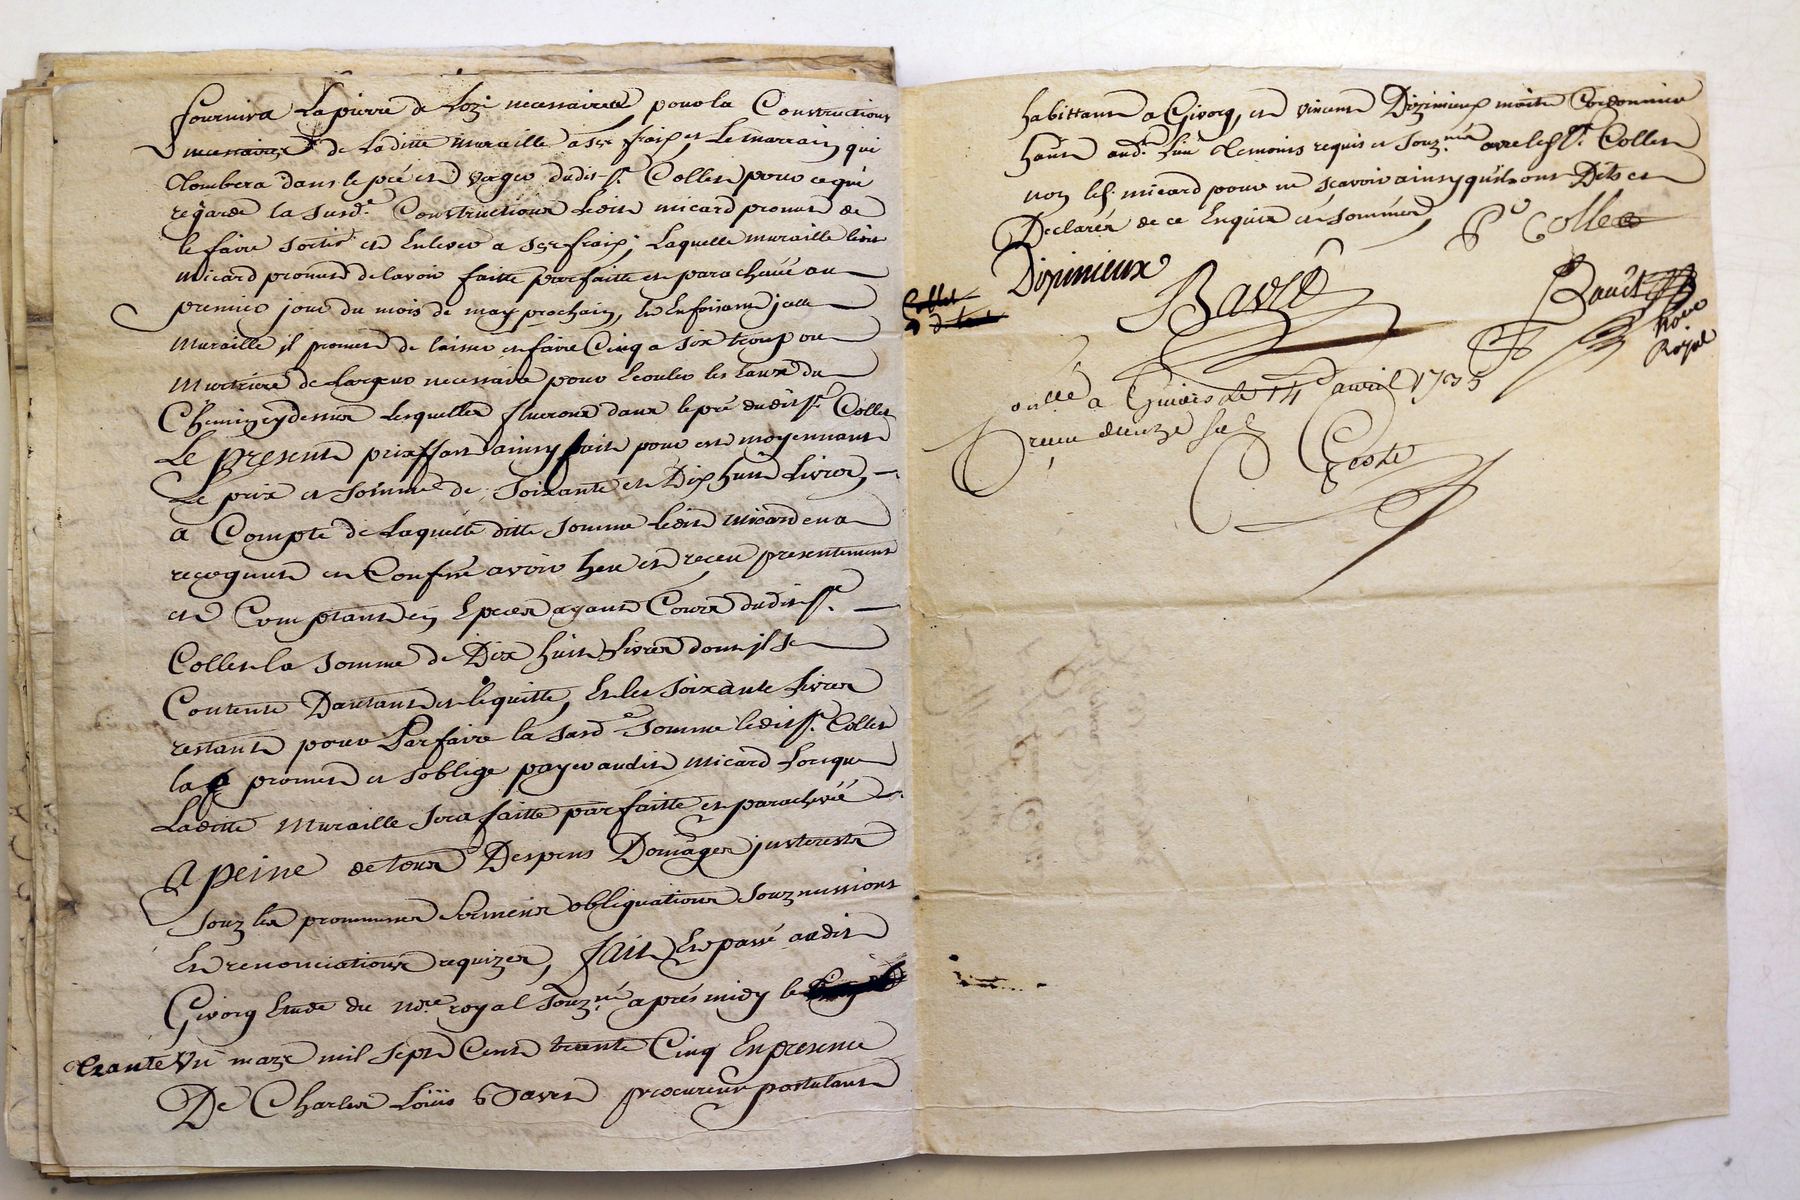 fournira La pierre de Lozi necessairee pour la Construction
necessaires de Laditte muraille a ses fraix, et Le marrain qui
tombera dans le pré et verger dudit Sr. Collet pour ce qui
regarde la susde. Construction Ledit micard promet de
le faire sortir et Enlever a ses fraix; Laquelle muraille ledit
Micard promet de lavoir faitte parfaitte et parachevée au
premier jour du mois de may prochain, et En faisant jcelle
Muraille jl promet de laisser et faire Cinq a six troup ou
Murtriere de largeur necessaire pour Ecouler les Eaux du
Chemin cydessus Lesquelles flueront dans le pré dudit Sr. Collet
Le present prixffait ainsy fait pour et moyennant
Le prix et somme de Soixante et Dix huit Livres,
a Compte de Laquelle ditte somme Ledit Micard en a
recognut et Confesse avoir heu et receu presentement
et Comptant en Especes ayant Cours dudit Sr.
Collet la somme de Dix huit Livres dont jl se
Contente Dautant et le quitte, Et les soixante Livres
restant pour Parfaire la susde somme ledit Sr. Collet
la promet et soblige payer audit Micard Lorsque
Laditte Muraille sera faitte parfaitte et parachevée
A peine de tous Despens Domages jnterests
souz les promesses sermens obligations souzmissions
Et renonciations requizes, fait Et passé audit
Givorg Etude du nore. royal souzné. aprés midy le
trante Un mars mil sept Cent trente Cinq En presence
De Charles Loüis Bavet procureur postulant
habittant a Givorg, et vincent Dizimieux maitre Cordonnier
hant. aud. Lieu temoins requis et souznés. avec led Sr. Collet
non led. micard pour ne sçavoir ainsy quils ont Dits et
Declarés de ce Enquis et sommés,
Pre Collet
Dizimieux
Bavet
Collet
Bouët
Nore
Royal
onllé a Givors le 14 avril 1735
receu douze sols
Coste